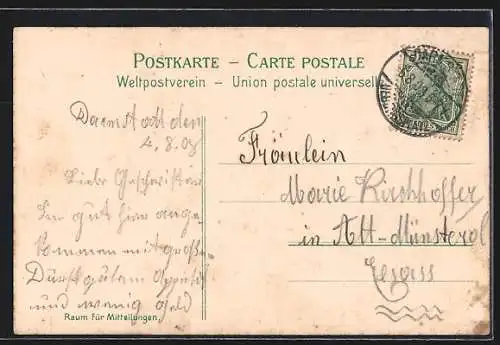 POSTKARTE – CARTE POSTALE
Weltpostverein – Union postale universelle
Darmstadt den
4.8.08
Liebe Geschwister
bin gut hier ange-
kommen mit groß
Durst gutem Appetit
und wenig Geld
Raum für Mitteilungen.
Fräulein
Marie Kirchhoffer
in Alt-Münsterol
Elsass